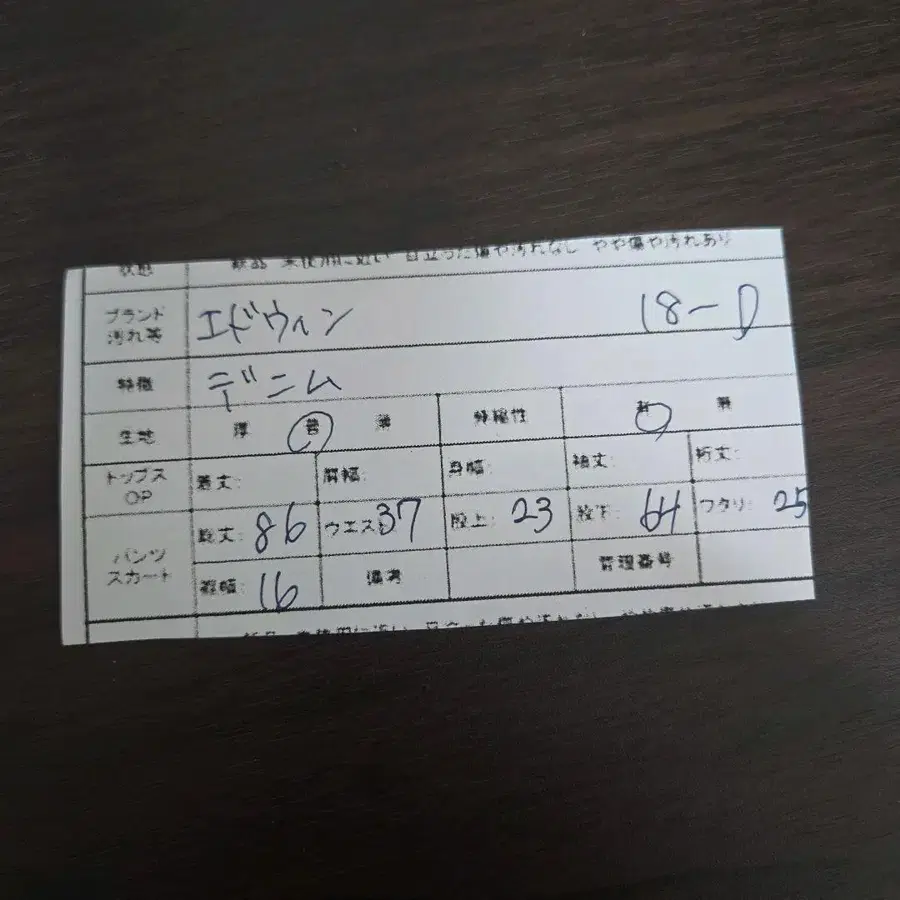 状態 新品 未使用に近い 目立った傷や汚れなし やや傷や汚れあり
ブランド
汚れ等 エドウィン 18-D
特徴 デニム
生地 厚 普 薄 伸縮性 有 無
トップス
OP 着丈: 肩幅: 身幅: 袖丈: 裄丈:
パンツ
スカート 総丈: 86 ウエスト 37 股上: 23 股下: 64 ワタリ: 25
裾幅: 16 備考 管理番号